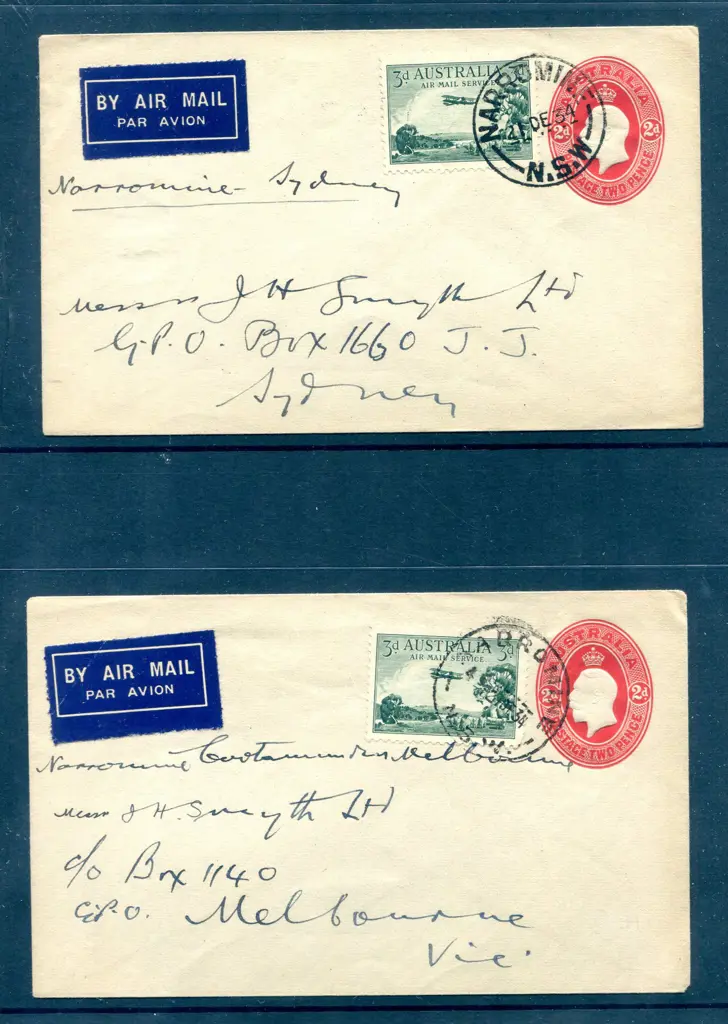 BY AIR MAIL
PAR AVION
3d AUSTRALIA
AIR MAIL SERVICE
NARROMINE
21 DE 34
N.S.W
AUSTRALIA
2d 2d
POSTAGE TWO PENCE
Narromine - Sydney
Messrs J H Smyth Ltd
G.P.O. Box 1660 J.J.
Sydney
BY AIR MAIL
PAR AVION
3d AUSTRALIA 3d
AIR MAIL SERVICE
NARROMINE
34
N.S.W.
AUSTRALIA
2d 2d
POSTAGE TWO PENCE
Narromine Cootamundra Melbourne
Messrs J H. Smyth Ltd
c/o Box 1140
G.P.O. Melbourne
Vic.